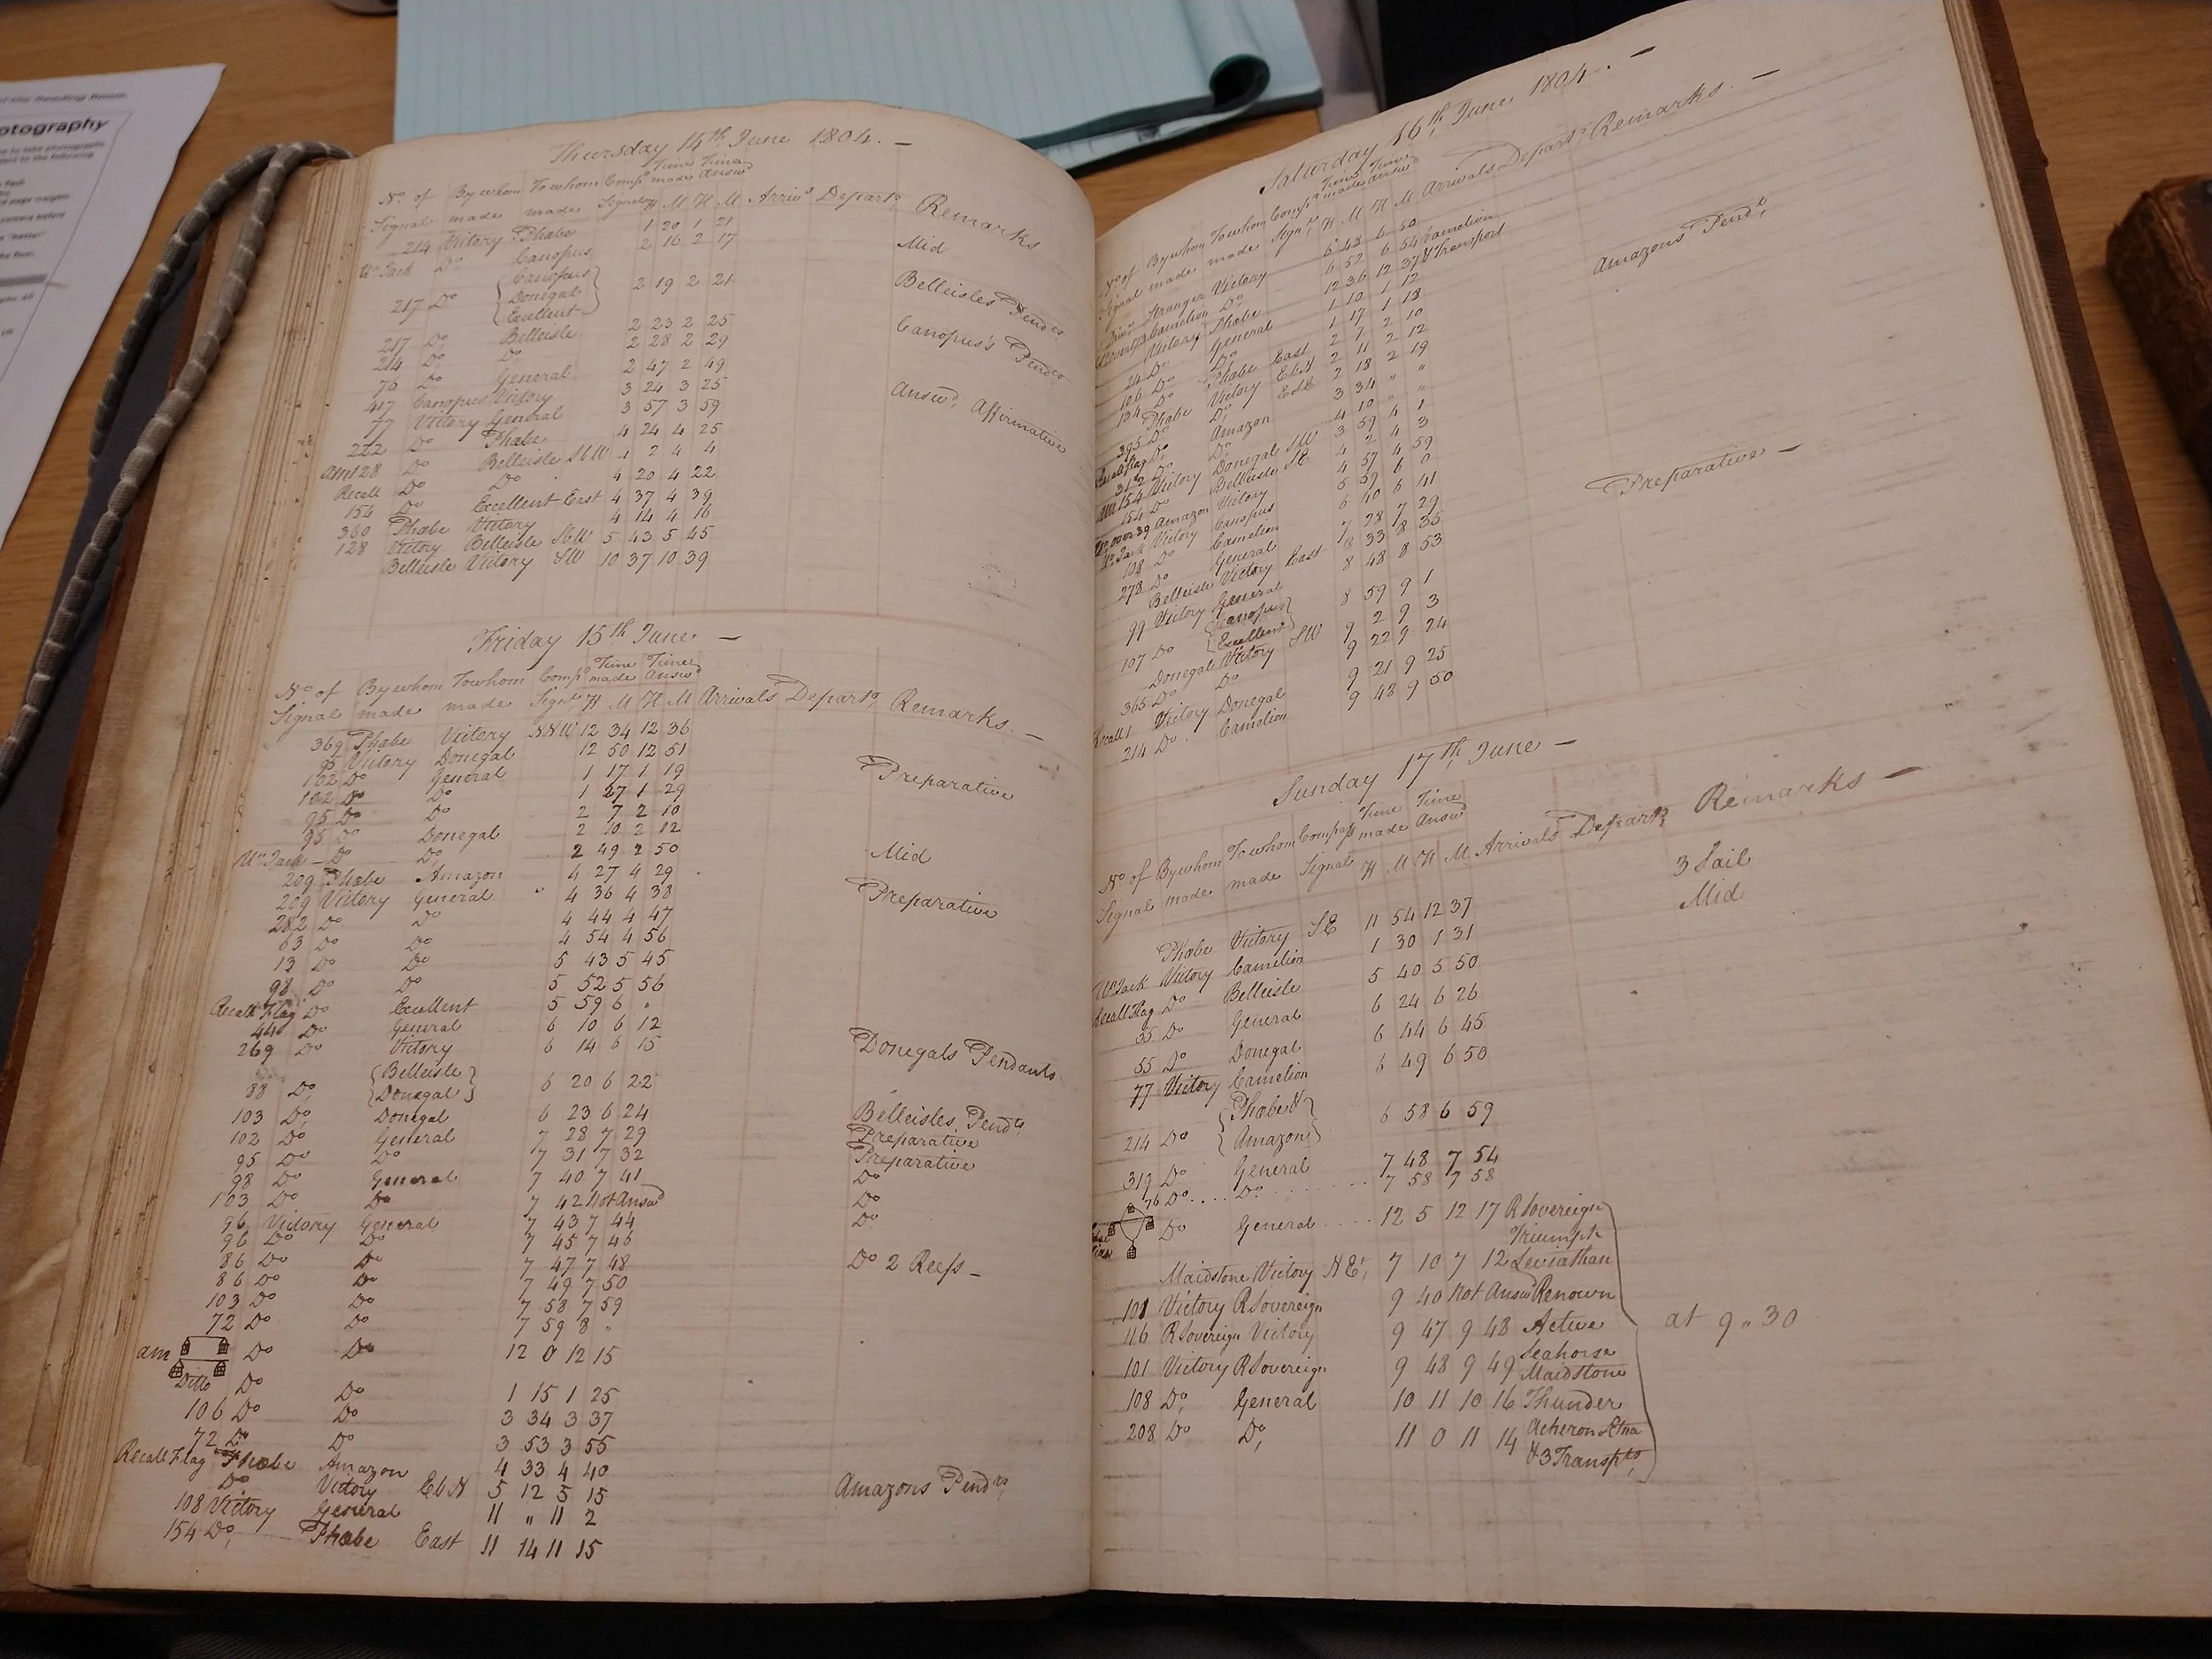 of the Reading Room
otography
Thursday 14th June 1804. —
No. of By whom To whom Comps Time made Time Answd
Signal made made Signal H M H M Arrivs Departs Remarks
214 Victory Phœbe 1 20 1 21
Un Jack Do Canopus 2 16 2 17 Mid
Canopus
217 Do Donegal 2 19 2 21 Belleisles Pendts
Excellent
217 Do Belleisle 2 23 2 25 Canopus's Pendts
214 Do Do 2 28 2 29
76 Do General 2 47 2 49
417 Canopus Victory 3 24 3 25 Answd Affirmative
77 Victory General 3 57 3 59
222 Do Phœbe 4 24 4 25
am 128 Do Belleisle SbW 4 2 4 4
Recall Do Do 4 20 4 22
154 Do Excellent East 4 37 4 39
360 Phœbe Victory 4 14 4 16
128 Victory Belleisle SbW 5 43 5 45
Belleisle Victory SW 10 37 10 39
Friday 15th June. —
No of By whom To whom Comps Time made Time Answd
Signal made made Signl H M H M Arrivals Departs Remarks. —
369 Phœbe Victory NNW 12 34 12 36
95 Victory Donegal 12 50 12 51
102 Do General 1 17 1 19 Preparative
102 Do Do 1 27 1 29
95 Do Do 2 7 2 10
95 Do Donegal 2 10 2 12
Un Jack — Do Do 2 49 2 50 Mid
209 Phœbe Amazon 4 27 4 29
209 Victory General 4 36 4 38 Preparative
282 Do Do 4 44 4 47
63 Do Do 4 54 4 56
13 Do Do 5 43 5 45
98 Do Do 5 52 5 56
Recall Flag Do Excellent 5 59 6 "
440 Do General 6 10 6 12
269 Do Victory 6 14 6 15 Donegals Pendants
Belleisle
88 Do Donegal 6 20 6 22
103 Do Donegal 6 23 6 24 Belleisles Pendts
102 Do General 7 28 7 29 Preparative
95 Do Do 7 31 7 32 Preparative
98 Do General 7 40 7 41 Do
103 Do Do 7 42 Not Answd Do
96 Victory General 7 43 7 44 Do
96 Do Do 7 45 7 46
86 Do Do 7 47 7 48 Do 2 Reefs —
86 Do Do 7 49 7 50
103 Do Do 7 58 7 59
72 Do Do 7 59 8 "
am Do Do 12 0 12 15
Ditto Do Do 1 15 1 25
106 Do Do 3 34 3 37
72 Do Do 3 53 3 55
Recall Flag Phœbe Amazon 4 33 4 40
Do Victory EbN 5 12 5 15 Amazons Pendts
108 Victory General 11 " 11 2
154 Do Phœbe East 11 14 11 15
Saturday 16th June 1804. —
No of By whom To whom Comps Time made Time Answd
Signal made made Signl H M H M Arrivals Departs Remarks. —
Stranger Victory 6 48 6 50
Camelion Do 6 52 6 54 Camelion
Victory Phœbe 12 36 12 37 & Transport Amazons Pendts
24 Do General 1 10 1 12
106 Do Do 1 17 1 18
134 Do Phœbe East 2 7 2 10
Phœbe Victory EbN 2 11 2 12
395 Do Do EbS 2 18 2 19
Recall Flag Do Amazon 3 34 " "
312 Do Do 4 10 " "
am 154 Victory Donegal SW 3 59 4 1
154 Do Belleisle SE 4 2 4 3
39 Amazon Victory 4 57 4 59
Un Jack Victory Canopus 5 59 6 0
108 Do Camelion 6 40 6 41 Preparative —
278 Do General 7 28 7 29
Belleisle Victory East 8 33 8 35
99 Victory General 8 48 8 53
Canopus
107 Do Excellent 8 59 9 1
Donegal Victory SW 9 2 9 3
365 Do Do 9 22 9 24
Recall Victory Donegal 9 21 9 25
214 Do Camelion 9 48 9 50
Sunday 17th June —
No of By whom To whom Comps Time made Time Answd
Signal made made Signal H M H M Arrivals Departs Remarks —
Phœbe Victory SE 11 54 12 37 3 Sail
Un Jack Victory Camelion 1 30 1 31 Mid
Recall Flag Do Belleisle 5 40 5 50
35 Do General 6 24 6 26
55 Do Donegal 6 44 6 45
77 Victory Camelion 6 49 6 50
Phœbe &
214 Do Amazon 6 58 6 59
319 Do General 7 48 7 54
76 Do .... Do ........ 7 58 7 58
Do General .... 12 5 12 17 R Sovereign
Triumph
Maidstone Victory NE 7 10 7 12 Leviathan
101 Victory R Sovereign 9 40 Not Answd Renown
116 R Sovereign Victory 9 47 9 48 Active at 9 " 30
Seahorse
101 Victory R Sovereign 9 48 9 49 Maidstone
108 Do General 10 11 10 16 Thunder
208 Do Do 11 0 11 14 Acheron Etna
& 3 Transpts